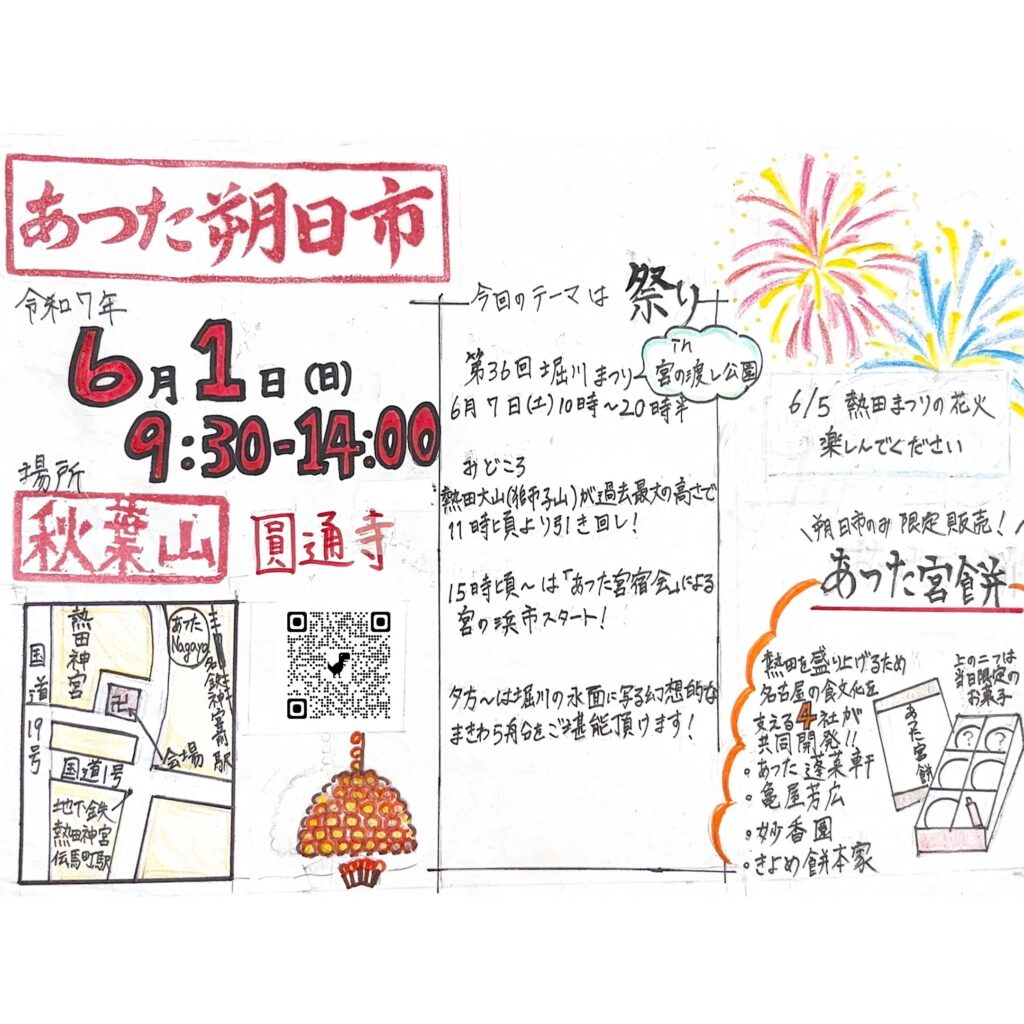 あつた朔日市
令和7年
6月1日(日)
9:30-14:00
場所
秋葉山
圓通寺
熱田神宮
国道19号
あつた
Nagaya
名鉄神宮前駅
卍
会場
国道1号
地下鉄
熱田神宮
伝馬町駅
今回のテーマは 祭り
第36回堀川まつり in 宮の渡し公園
6月7日(土)10時〜20時半
みどころ
熱田大山(獅子山)が過去最大の高さで
11時頃より引き回し!
15時頃〜は「あつた宮宿会」による
宮の浜市スタート!
夕方〜は堀川の水面に写る幻想的な
まきわら舟をご堪能頂けます!
6/5 熱田まつりの花火
楽しんでください
\朔日市のみ限定販売!/
あつた宮餅
熱田を盛り上げるため
名古屋の食文化を
支える4社が
共同開発!!
・あつた蓬莱軒
・亀屋芳広
・妙香園
・きよめ餅本家
上の二つは
当日限定の
お菓子
あつた宮餅
? ?